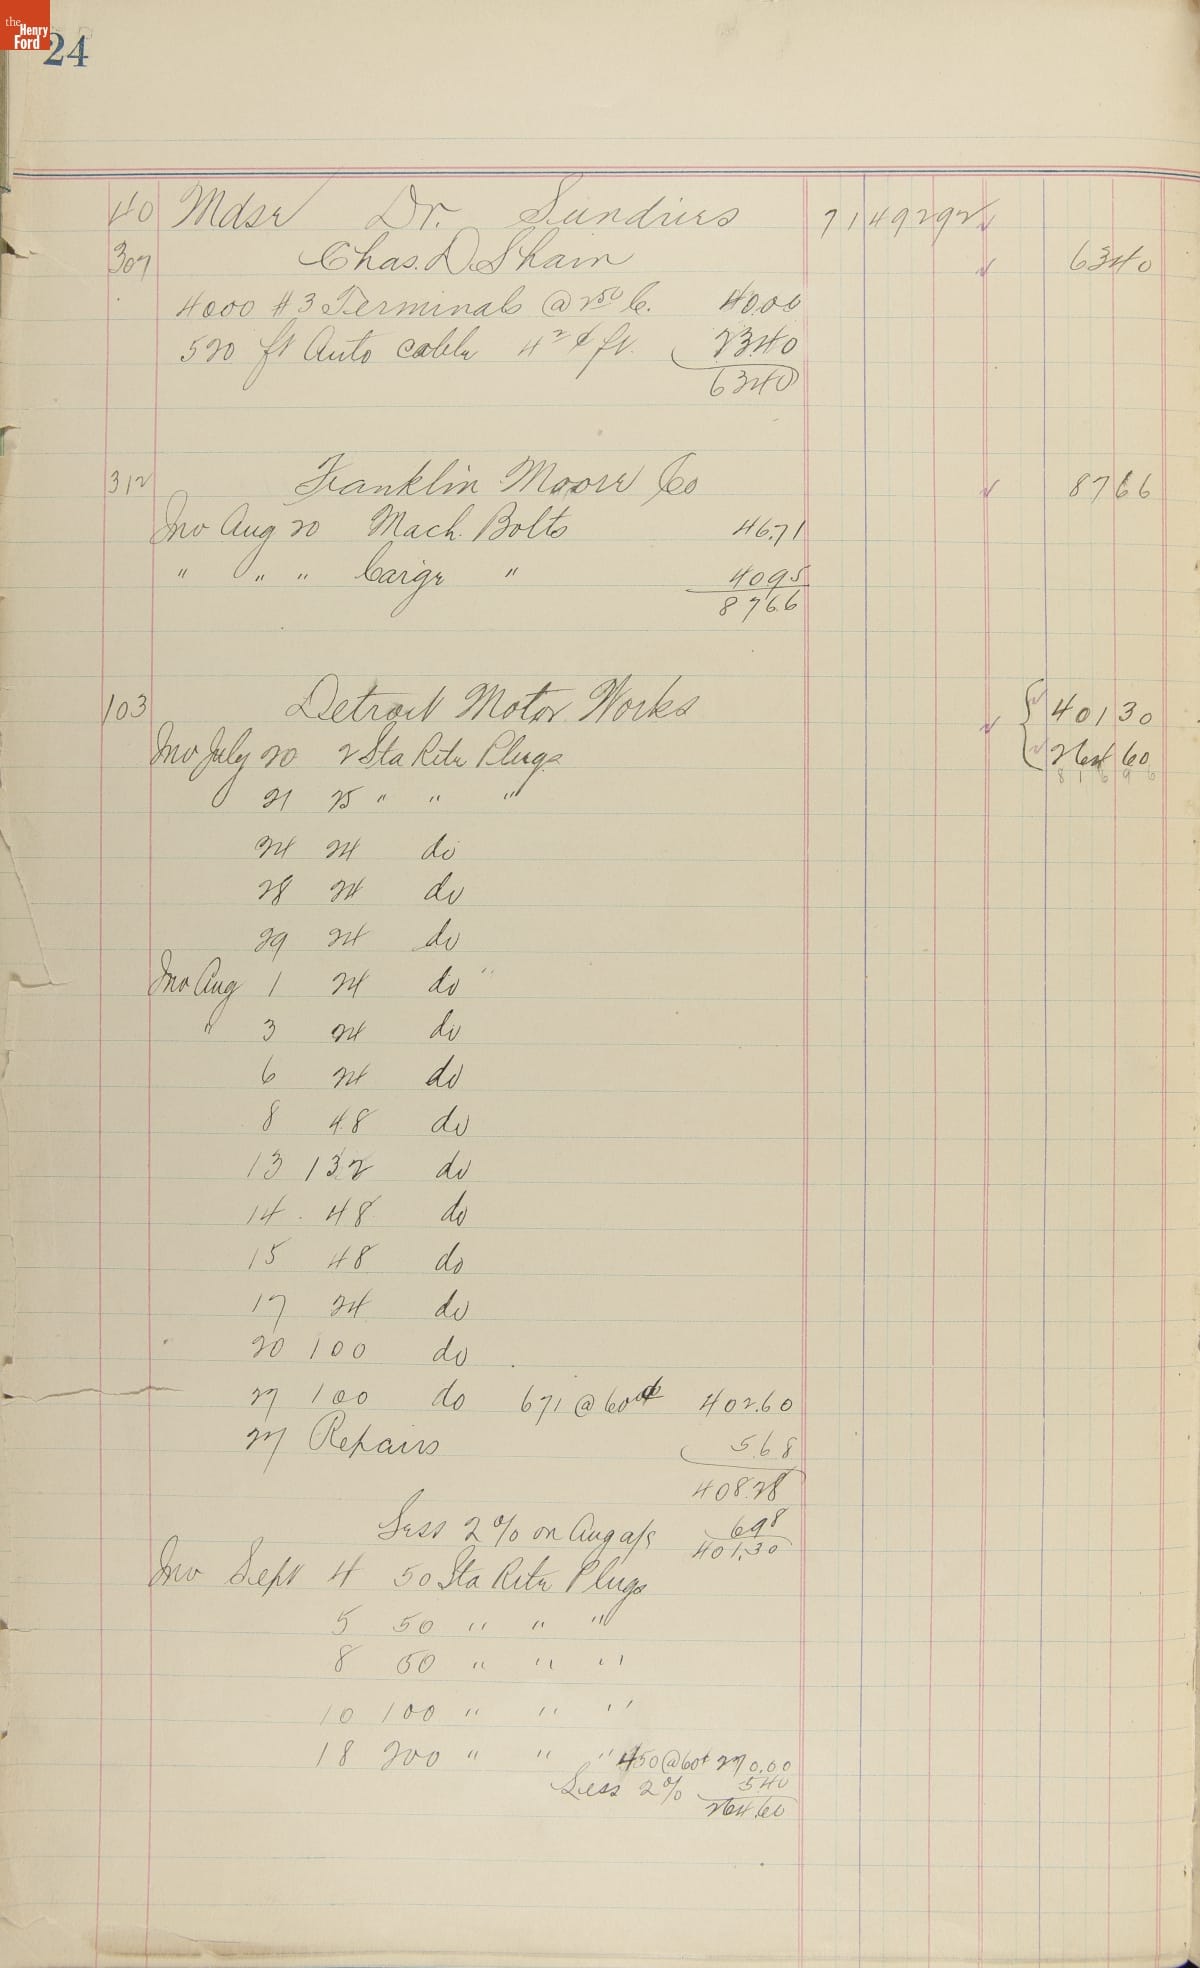 the Henry Ford
24
40 Mdse Dr. Sundries 7149292
307 Chas. D. Shain 6340
4000 #3 Terminals @ 250 C. 40.00
520 ft Auto cable 4 2 ¢ ft. 23.40
63.40
312 Franklin Moore Co 8766
Inv Aug 20 Mach. Bolts 46.71
" " " Carige " 40.95
87.66
103 Detroit Motor Works 40130
Inv July 20 2 Sta Rite Plugs 26460
21 25 " " "
24 24 do
28 24 do
29 24 do
Inv Aug 1 24 do "
" 3 24 do
6 24 do
8 48 do
13 132 do
14 48 do
15 48 do
17 24 do
20 100 do
27 100 do 671 @ 60¢ 402.60
27 Repairs 5.68
408.28
Less 2% on Aug a/c 698
401.30
Inv Sept 4 50 Sta Rite Plugs
5 50 " " "
8 50 " " "
10 100 " " "
18 200 " " " 450 @ 60¢ 270.00
Less 2% 540
264.60